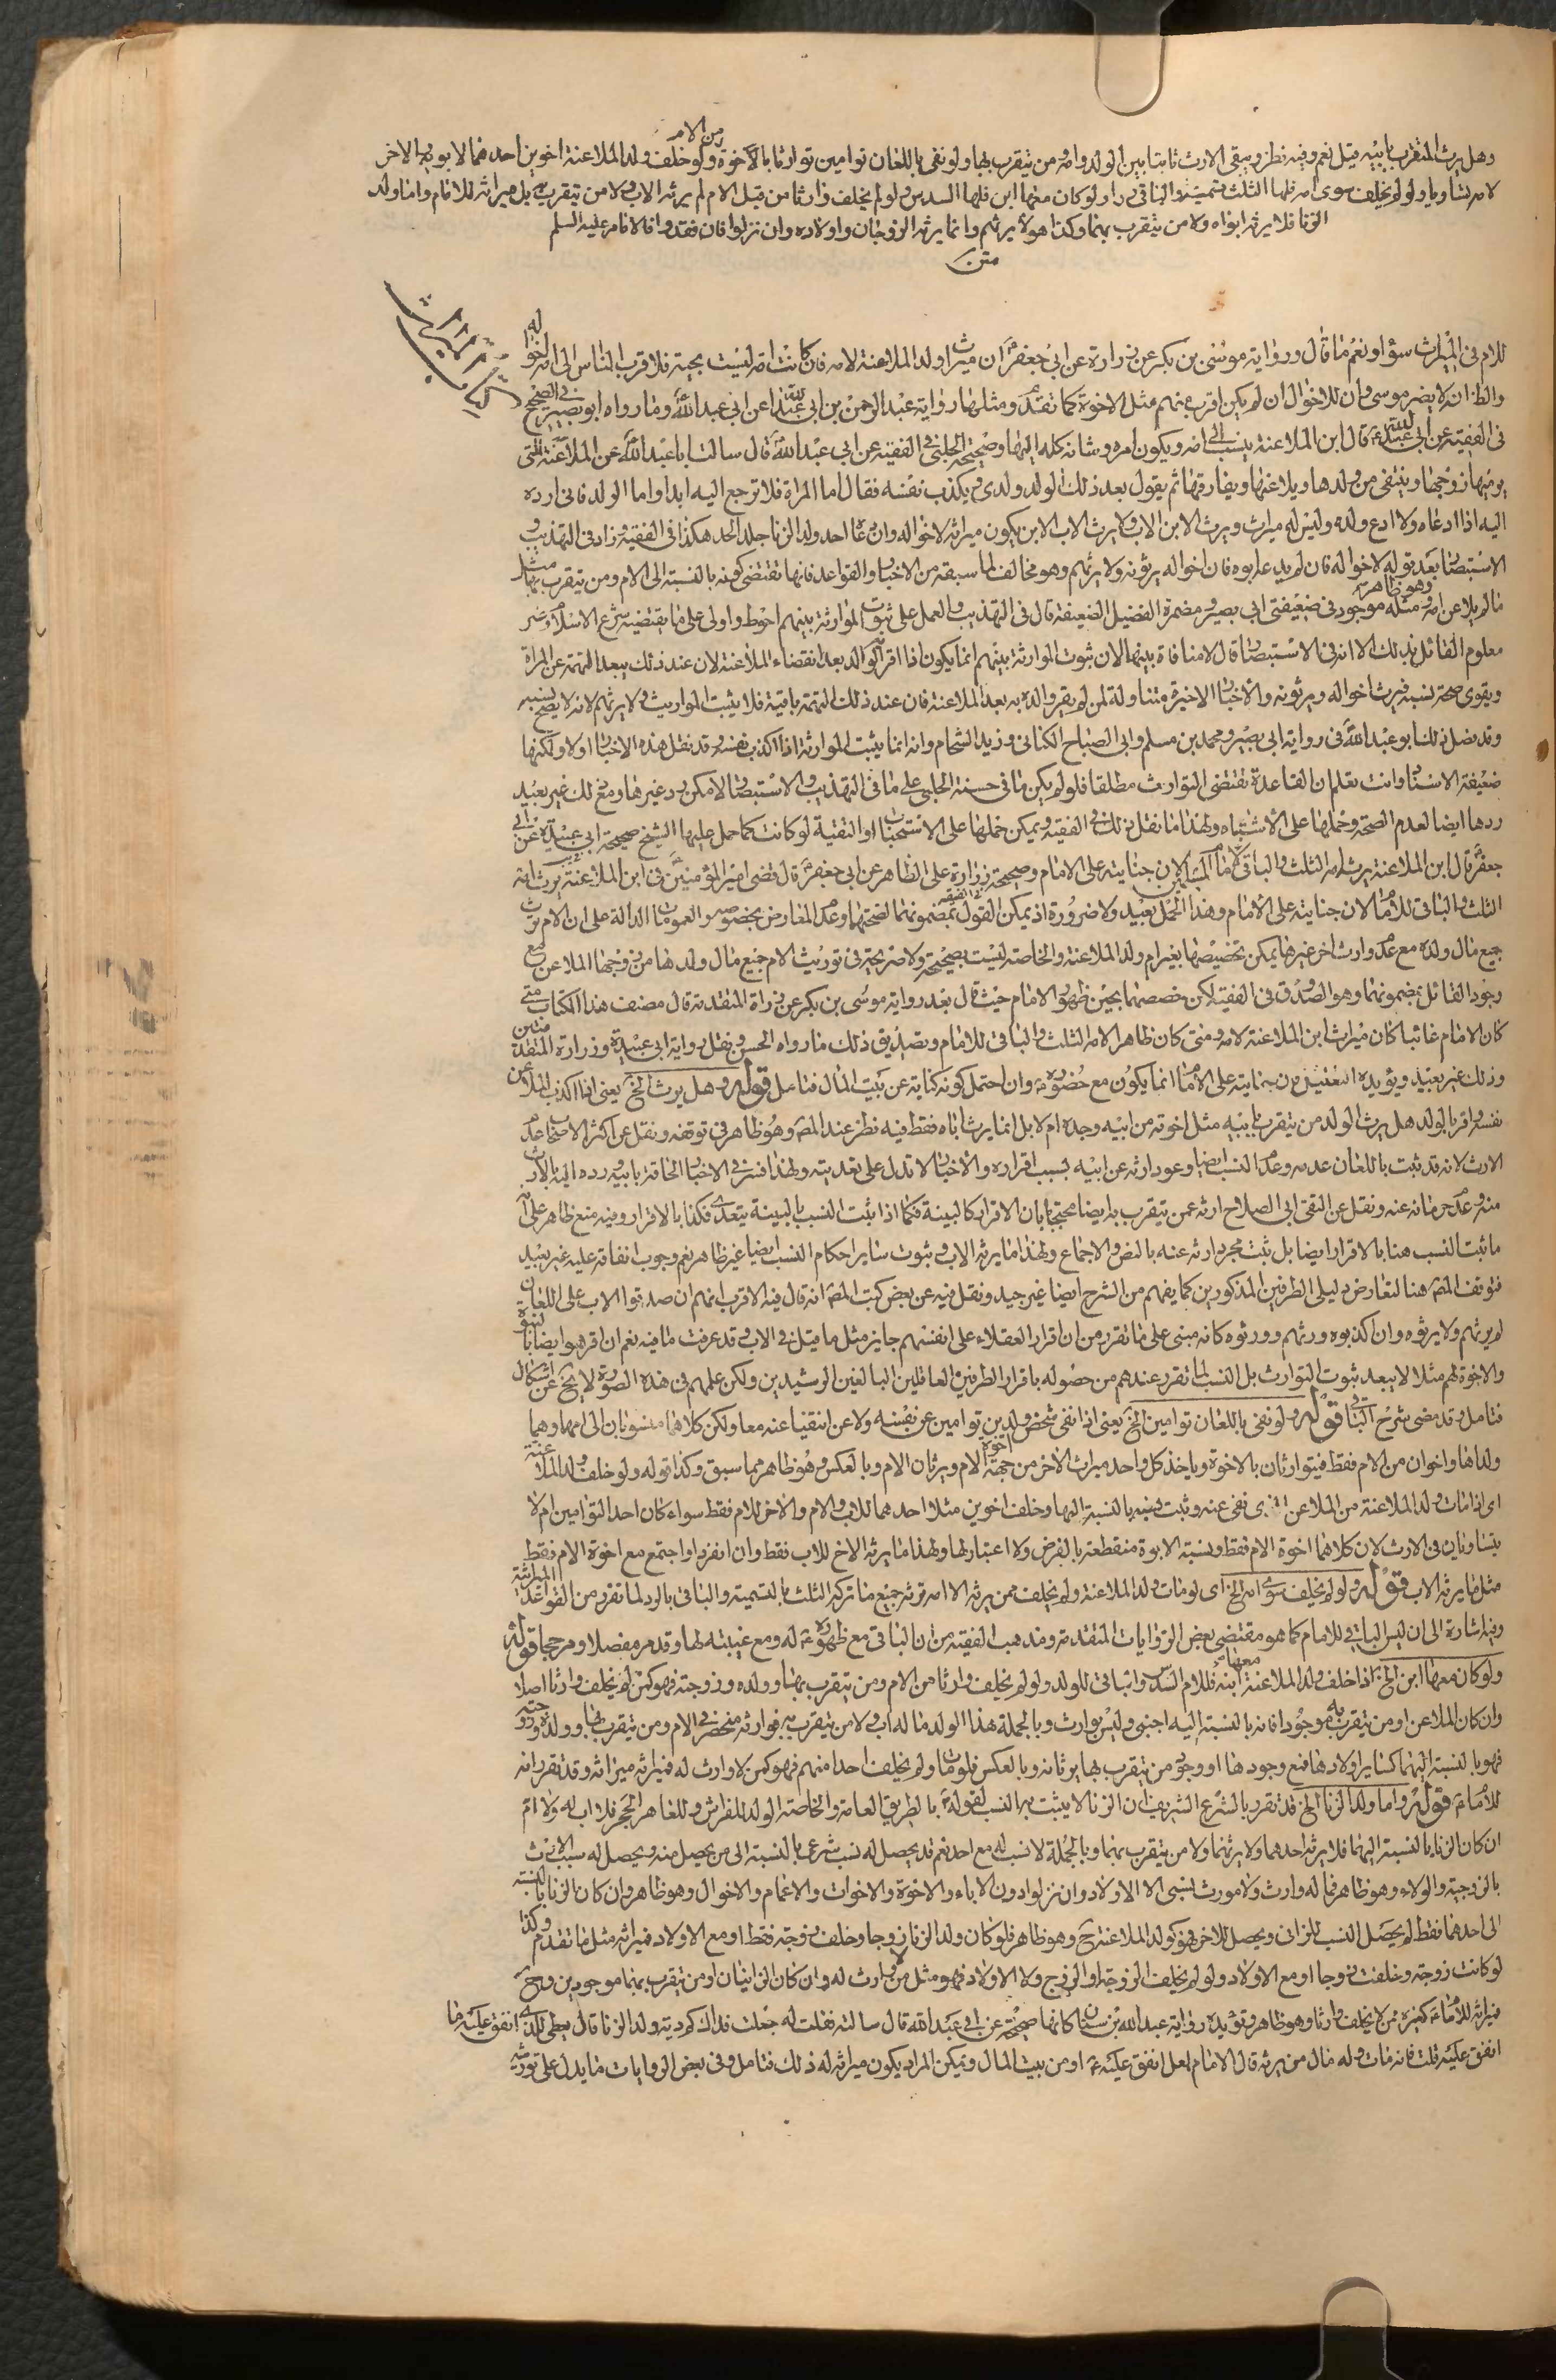 وهل يرث المتقرب بابيه قيل نعم وفيه نظر ويبقى الارث ثابتا بين الولد وامه ومن يتقرب بها ولو نفى باللعان توامين توارثا بالاخوة من الام ولو خلف ولد الملاعنة اخوين احدهما لابويه والاخر
لامه تساويا ولو لم يخلف سوى امه فلها الثلث تسمية والباقى رد ولو كان معها ابن فلها السدس ولو لم يخلف وارثا من قبل الام لم يرثه الاب ولا من يتقرب به بل ميراثه للامام واما ولد
الزنا فلا يرثه ابواه ولا من يتقرب بهما وكذا هو لا يرثهم وانما يرثه الزوجان واولاده وان نزلوا فان فقدوا فالامام عليه السلم
متن
كتاب الميراث
للام فى الميراث سواء ونعم ما قال ورواية موسى بن بكر عن زرارة عن ابى جعفر ان ميراث ولد الملاعنة لامه فان كانت امه ليست بحية فلاقرب الناس الى امه اخواله
والظ انه لا يضر موسى وان للاخوال ان لم يكن اقرب منهم مثل الاخوة كما تقدم ومثلها رواية عبد الرحمن بن ابى عبد الله عن ابى عبد الله وما رواه ابو بصير فى الصحيح
فى الفقيه عن ابى عبد الله قال ابن الملاعنة ينسب الى امه ويكون امره وشانه كله اليها وصحيحة الحلبى فى الفقيه عن ابى عبد الله قال سالت ابا عبد الله عن الملاعنة التى
يرميها زوجها وينتفى من ولدها ويلاعنها ويفارقها ثم يقول بعد ذلك الولد ولدى ويكذب نفسه فقال اما المراة فلا ترجع اليه ابدا واما الولد فانى ارده
اليه اذا ادعاه ولا ادع ولده وليس له ميراث ويرث الابن الاب ولا يرث الاب الابن يكون ميراثه لاخواله وان دعا احد ولد الزنا جلد الحد هكذا فى الفقيه وزاد فى التهذيب و
الاستبصار بعد قوله لاخواله فان لم يدعه ابوه فان اخواله يرثونه ولا يرثهم وهو مخالف لما سبقه من الاخبار والقواعد فانها تقتضى كونه بالنسبة الى الام ومن يتقرب بها مثل
ما لم يلاعن امه ومثله موجود فى ضعيفتى ابى بصير وهو ظاهر ومضمرة الفضيل الضعيفة قال فى التهذيب والعمل على ثبوت الموارثة بينهم احوط واولى على ما يقتضيه شرع الاسلام وغير
معلوم القائل بذلك الا انه فى الاستبصار قال لا منافاة بينها لان ثبوت الموارثة بينهم انما يكون اذا اقر به الوالد بعد انقضاء الملاعنة لان عند ذلك يبعد التهمة عن المراة
ويقوى صحة نسبه فيرث اخواله ويرثونه والاخبار الاخيرة متناولة لمن لم يقر والده به بعد الملاعنة فان عند ذلك التهمة باقية فلا يثبت المواريث ولا يرثهم لانه لا يصح نسبه
وقد فصل ذلك ابو عبد الله فى رواية ابى بصير ومحمد بن مسلم وابى الصباح الكنانى وزيد الشحام وانه انما يثبت الموارثة اذا اكذب نفسه وقد نقل هذه الاخبار اولا ولكنها
ضعيفة الاسناد وانت تعلم ان القاعدة تقتضى التوارث مطلقا فلو لم يكن ما فى حسنة الحلبى على ما فى التهذيب والاستبصار لامكن رد غيرها ومع ذلك غير بعيد
ردها ايضا لعدم الصحة وحملها على الاشتباه ولهذا ما نقل ذلك فى الفقيه ويمكن حملها على الاستحباب او التقية لو كانت كما حمل عليها الشيخ صحيحة ابى عبيدة عن ابى
جعفر قال ابن الملاعنة يرثه امه الثلث والباقى لامام المسلمين لان جنايته على الامام وصحيحة زرارة على الظاهر عن ابى جعفر قال قضى امير المؤمنين فى ابن الملاعنة يرث امه
الثلث والباقى للامام لان جنايته على الامام وهذا الحمل بعيد ولا ضرورة اذ يمكن القول بمضمونهما لصحتهما وعدم المعارض بخصوصه والعمومات الدالة على ان الام ترث
جميع مال ولده مع عدم وارث اخر غيرها يمكن تخصيصها بغير ام ولد الملاعنة والخاصة ليست بصحيحة ولا صريحة فى توريث الام جميع مال ولدها من زوجها الملاعن مع
وجود القائل بمضمونهما وهو الصدوق فى الفقيه لكن خصصهما بحين ظهور الامام حيث قال بعد رواية موسى بن بكر عن زرارة المتقدمة قال مصنف هذا الكتاب متى
كان الامام غائبا كان ميراث ابن الملاعنة لامه ومتى كان ظاهرا لامه الثلث والباقى للامام وتصديق ذلك ما رواه الحسن ونقل رواية ابى عبيدة وزرارة المتقدمتين
وذلك غير بعيد ويؤيده التعليل بان جنايته على الامام انما يكون مع حضوره وان احتمل كونه كناية عن بيت المال فتامل قوله وهل يرث الخ يعنى اذا اكذب الملاعن
نفسه واقر بالولد هل يرث الولد من يتقرب بابيه مثل اخوته من ابيه وجده ام لا بل انما يرث اباه فقط فيه نظر عند المص وهو ظاهر فى توقفه ونقل عن اكثر الاصحاب عدم
الارث لانه قد ثبت باللعان عدمه وعدم النسب ايضا وعود ارثه عن ابيه بسبب اقراره والاخبار لا تدل على تعديته ولهذا فسر فى الاخبار الحاقه بابيه ورده اليه بالارث
منه وعدم حرمانه عنه ونقل عن التقى ابى الصلاح ارثه عمن يتقرب به ايضا محتجا بان الاقرار كالبينة فكما اذا ثبت النسب بالبينة يتعدى فكذا بالاقرار وفيه منع ظاهر على انه
ما ثبت النسب هنا بالاقرار ايضا بل ثبت مجرد ارثه عنه بالنص والاجماع ولهذا ما يرثه الاب وثبوت ساير احكام النسب ايضا غير ظاهر نعم وجوب انفاقه عليه غير بعيد
فتوقف المص هنا لتعارض دليلى الطرفين المذكورين كما يفهم من الشرح ايضا غير جيد ونقل فيه عن بعض كتب المص انه قال فيه الاقرب انهم ان صدقوا الاب على اللعان
لم يرثهم ولا يرثوه وان اكذبوه ورثهم وورثوه كانه مبنى على ما تقرر من ان اقرار العقلاء على انفسهم جايز مثل ما قيل فى الاب وقد عرفت ما فيه نعم ان اقر هو ايضا بالبنوة
والاخوة لهم مثلا لا يبعد ثبوت التوارث بل النسب لما تقرر عندهم من حصوله باقرار الطرفين العاقلين البالغين الرشيدين ولكن علمهم فى هذه الصورة لا يخ عن اشكال
فتامل وقد مضى شرح الباقى قوله ولو نفى باللعان توامين الخ يعنى اذا نفى شخص ولدين توامين عن نفسه ولاعن انتفيا عنه معا ولكن كلاهما منسوبان الى امهما وهما
ولداها واخوان من الام فقط فيتوارثان بالاخوة وياخذ كل واحد ميراث الاخر من جهة اخوة الام ويرثان الام وبالعكس وهو ظاهر مما سبق وكذا قوله ولو خلف ولد الملاعنة
اى اذا مات ولد الملاعنة من الملاعن الذى نفى عنه وثبت نسبه بالنسبة اليها وخلف اخوين مثلا احدهما للاب والام والاخر للام فقط سواء كان احد التوامين ام لا
يتساويان فى الارث لان كلاهما اخوة الام فقط ونسبة الابوة منقطعة بالفرض ولا اعتبار لها ولهذا ما يرثه الاخ للاب فقط وان انفرد او اجتمع مع اخوة الام فقط
مثل ما يرثه الاب قوله ولو لم يخلف سوى امه الخ اى لو مات ولد الملاعنة ولم يخلف ممن يرثه الا امه ترثه جميع ما تركه الثلث بالتسمية والباقى بالرد لما تقرر من القواعد الميراثية
وفيه اشارة الى ان ليس الباقى للامام كما هو مقتضى بعض الروايات المتقدمة ومذهب الفقيه من ان الباقى مع ظهوره له ومع غيبته لها وقد مر مفصلا ومرجحا قوله
ولو كان معها ابن الخ اذا خلف ولد الملاعنة معها ابنه فللام السدس والباقى للولد ولو لم يخلف وارثا من الام ومن يتقرب بها وولده وزوجته فهو كمن لم يخلف وارثا اصلا
وان كان الملاعن او من يتقرب به موجودا فانه بالنسبة اليه اجنبى وليس بوارث وبالجملة هذا الولد ما له اب ولا من يتقرب به فوارثه منحصر فى الام ومن يتقرب بها وولده وزوجته
فهو بالنسبة اليها كساير اولادها فمع وجودها او وجود من يتقرب بها يرثانه وبالعكس فلو مات ولم يخلف احدا منهم فهو كمن لا وارث له فيرثه ميراثه وقد تقرر انه
للامام قوله واما ولد الزنا الخ قد تقرر بالشرع الشريف ان الزنا لا يثبت به النسب لقوله بالطريق العامة والخاصة الولد للفراش وللعاهر الحجر فلا اب له ولا ام
ان كان الزناء بالنسبة اليهما فلا يرثه احدهما ولا يرثهما ولا من يتقرب بهما وبالجملة لا نسب له مع احد نعم قد يحصل له نسب شرعى بالنسبة الى من يحصل منه ويحصل له سبب الارث
بالزوجية والولاء وهو ظاهر فما له وارث ولا مورث نسبى الا الاولاد وان نزلوا دون الاباء والاخوة والاخوات والاعمام والاخوال وهو ظاهر وان كان الزنا بالنسبة
الى احدهما فقط لم يحصل النسب للزانى ويحصل للاخر فهو كولد الملاعنة ح وهو ظاهر فلو كان ولد الزنا زوجا وخلف زوجة فقط او مع الاولاد فيراثه مثل ما تقدم وكذا
لو كانت زوجة وخلفت زوجا او مع الاولاد ولو لم يخلف الزوجة او الزوج ولا الاولاد فهو مثل من لا وارث له وان كان الزانيان او من يتقرب بهما موجودين وح
ميراثه للامام كغيره ممن لا يخلف وارثا وهو ظاهر وتؤيده رواية عبد الله بن سنان كانها صحيحة عن ابى عبد الله قال سالته فقلت له جعلت فداك كم دية ولد الزنا قال يعطى للذى انفق عليه ما
انفق عليه قلت فانه مات وله مال من يرثه قال الامام لعل انفق عليه او من بيت المال ويمكن المراد يكون ميراثه له ذلك فتامل وفى بعض الروايات ما يدل على توريثه